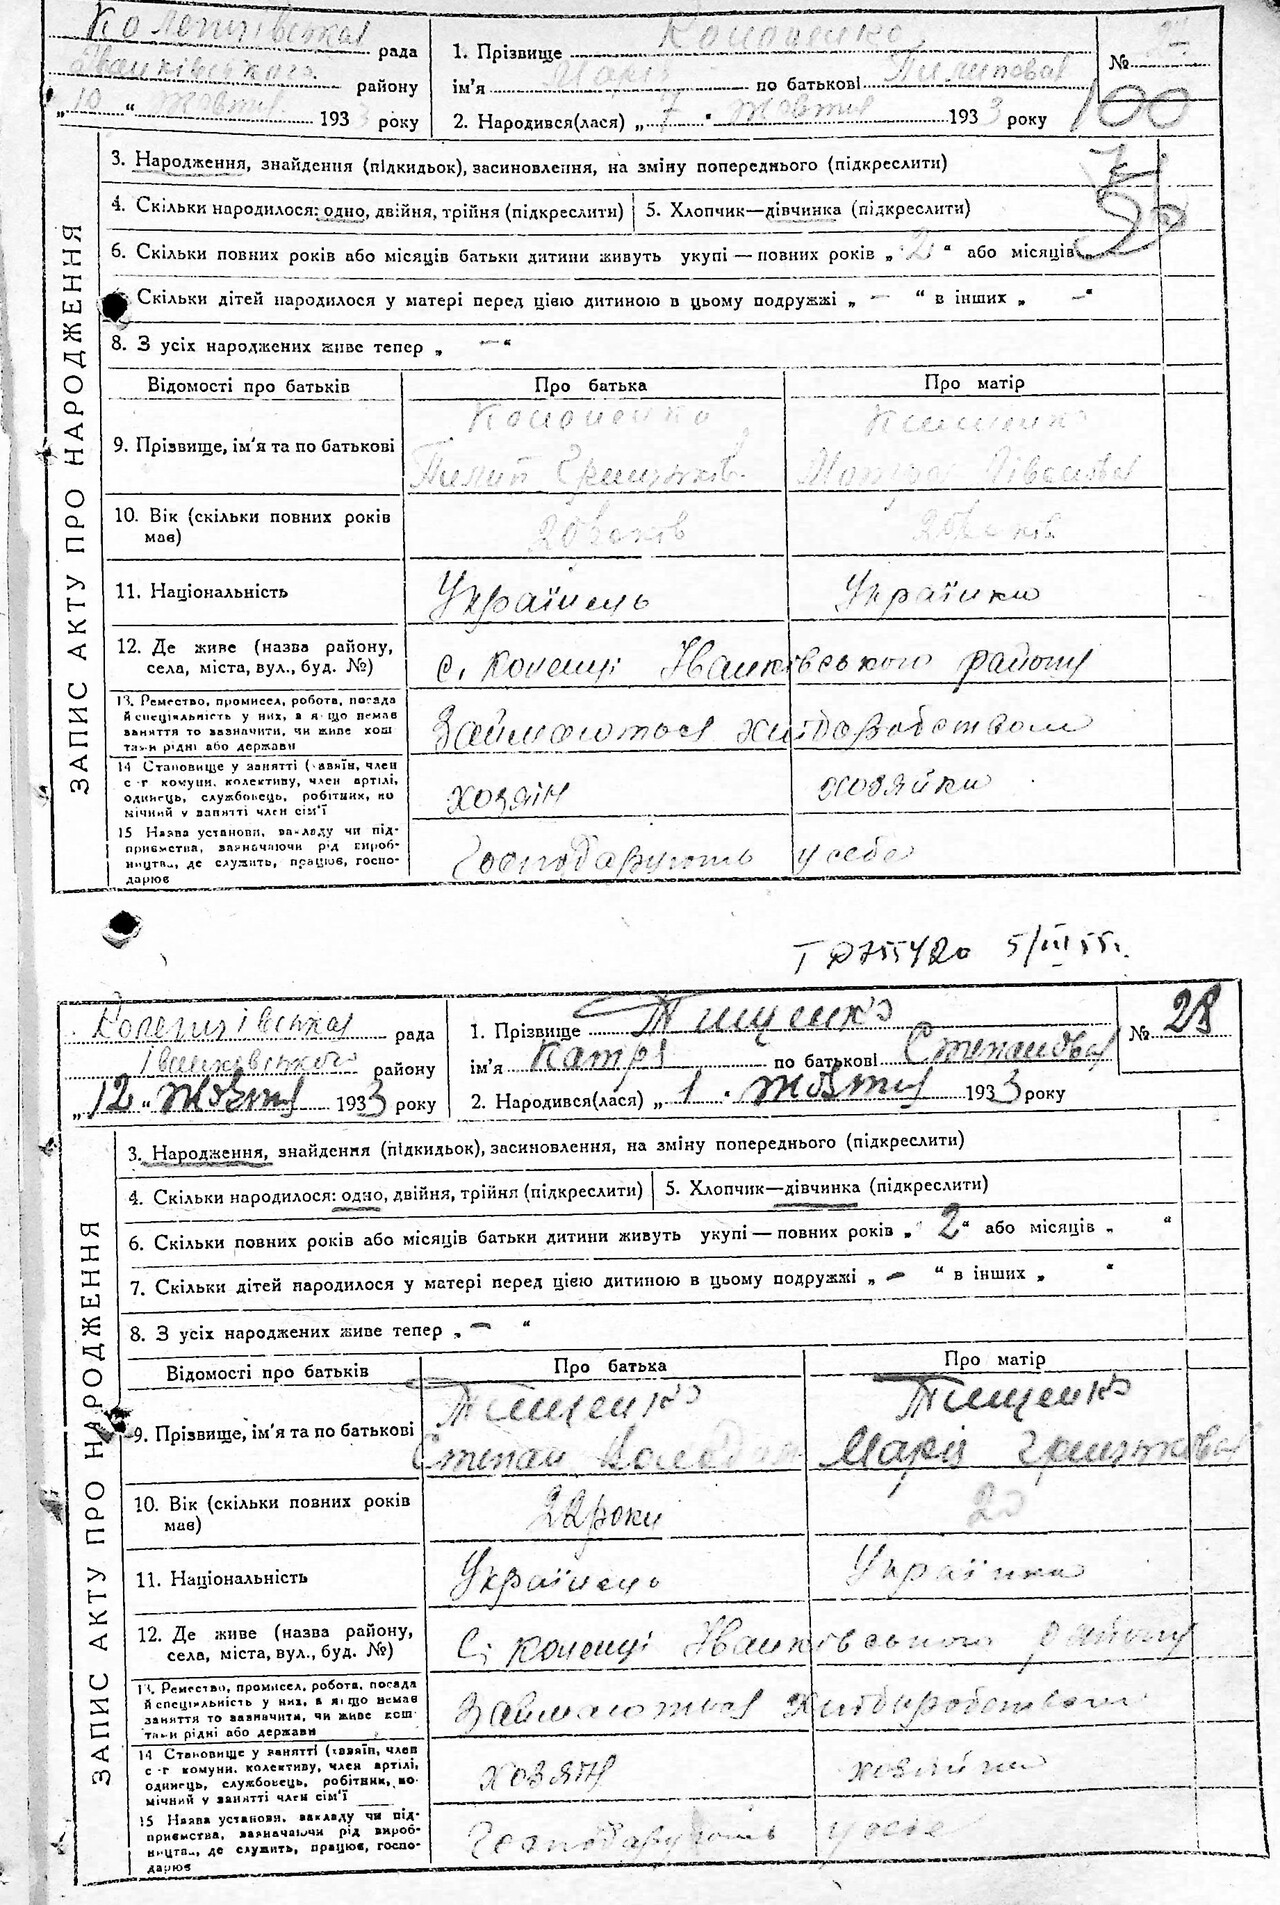 рада
Іванківського району
„10“ Жовтня 1933 року
1. Прізвище Кононенко
ім'я Марія по батькові Пилипова
2. Народився(лася) „7“ Жовтня 1933 року
№
100
ЗАПИС АКТУ ПРО НАРОДЖЕННЯ
3. Народження, знайдення (підкидьок), засиновлення, на зміну попереднього (підкреслити)
4. Скільки народилося: одно, двійня, трійня (підкреслити)
5. Хлопчик—дівчинка (підкреслити)
6. Скільки повних років або місяців батьки дитини живуть укупі — повних років „2“ або місяців „
Скільки дітей народилося у матері перед цією дитиною в цьому подружжі „ — “ в інших „ — “
8. З усіх народжених живе тепер „ — “
Відомості про батьків Про батька Про матір
9. Прізвище, ім'я та по батькові
Кононенко
Пилип Грицьків
Тищенко
Мотря Іванова
10. Вік (скільки повних років має) 20 років 20 років
11. Національність Українець Українка
12. Де живе (назва району, села, міста, вул., буд. №) с. Коленці Іванківського району
13. Ремество, промисел, робота, посада й спеціяльність у них, а якщо немає заняття то зазначити, чи живе кошта́ми рідні або держави
Займаються хліборобством
14 Становище у занятті (хазяїн, член с.-г комуни, колективу, член артілі, одинець, службовець, робітник, помічний у занятті член сім'ї
хозяїн хозяйка
15 Назва установи, закладу чи підприємства, зазначаючи рід виробництва, де служить, працює, господарює
Господарують у себе
5/III 55 г.
рада
Іванковського району
„12“ Жовтня 1933 року
1. Прізвище Тищенко
ім'я Катря по батькові Степанова
2. Народився(лася) „1“ Жовтня 1933 року
№ 28
ЗАПИС АКТУ ПРО НАРОДЖЕННЯ
3. Народження, знайдення (підкидьок), засиновлення, на зміну попереднього (підкреслити)
4. Скільки народилося: одно, двійня, трійня (підкреслити)
5. Хлопчик—дівчинка (підкреслити)
6. Скільки повних років або місяців батьки дитини живуть укупі — повних років „2“ або місяців „ “
7. Скільки дітей народилося у матері перед цією дитиною в цьому подружжі „ — “ в інших „ “
8. З усіх народжених живе тепер „ — “
Відомості про батьків Про батька Про матір
9. Прізвище, ім'я та по батькові
Тищенко
Степан
Тищенко
Марія Грицькова
10. Вік (скільки повних років має) 22 роки 20
11. Національність Українець Українка
12. Де живе (назва району, села, міста, вул., буд. №) С. Коленці Іванківського району
13. Ремество, промисел, робота, посада й спеціяльність у них, а якщо немає заняття то зазначити, чи живе коштами рідні або держави
Займаються хліборобством
14 Становище у занятті (хазяїн, член с.-г комуни, колективу, член артілі, одинець, службовець, робітник, помічний у занятті член сім'ї
хозяїн хозяйка
15 Назва установи, закладу чи підприємства, зазначаючи рід виробництва, де служить, працює, господарює
Господарують у себе